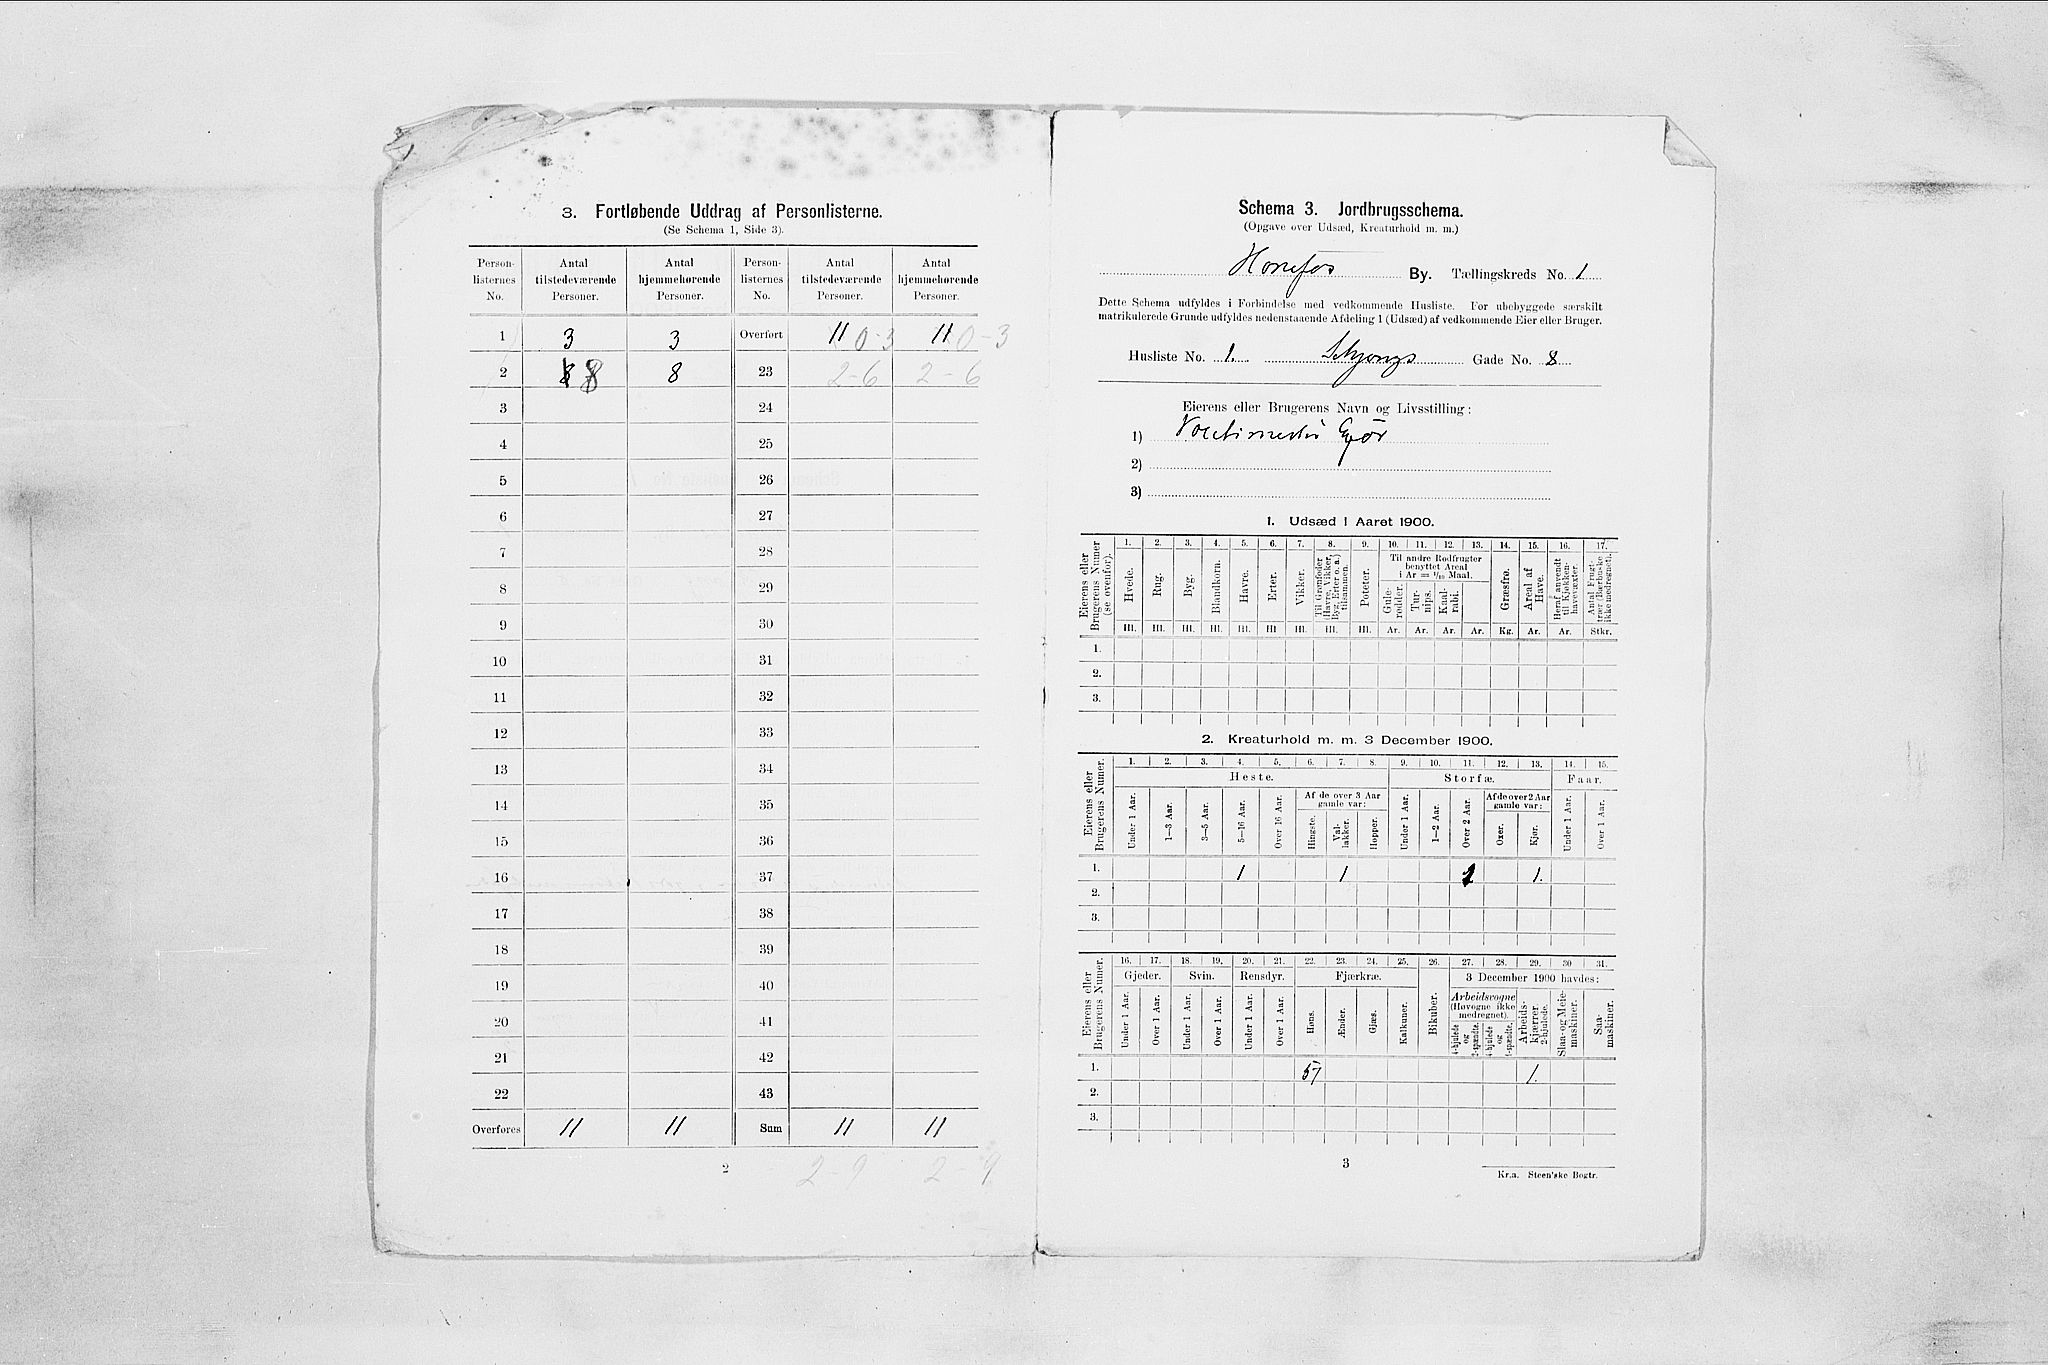 3. Fortløbende Uddrag af Personlisterne.
(Se Schema 1, Side 3).
Person-listernes No. Antal tilstedeværende Personer. Antal hjemmehørende Personer. Person-listernes No. Antal tilstedeværende Personer. Antal hjemmehørende Personer.
1 3 3 Overført 11 0-3 11 0-3
2 8 8 23 2-6 2-6
3 24
4 25
5 26
6 27
7 28
8 29
9 30
10 31
11 32
12 33
13 34
14 35
15 36
16 37
17 38
18 39
19 40
20 41
21 42
22 43
Overføres 11 11 Sum 11 11
2 2-9 2-9
Schema 3. Jordbrugsschema.
(Opgave over Udsæd, Kreaturhold m. m.)
Hønefos By. Tællingskreds No. 1
Dette Schema udfyldes i Forbindelse med vedkommende Husliste. For ubebyggede særskilt
matrikulerede Grunde udfyldes nedenstaaende Afdeling 1 (Udsæd) af vedkommende Eier eller Bruger.
Husliste No. 1. Gade No. 8
Eierens eller Brugerens Navn og Livsstilling:
1)
2)
3)
1. Udsæd i Aaret 1900.
Eierens eller Brugerens Numer (se ovenfor).
1. 2. 3. 4. 5. 6. 7. 8. 9. 10. 11. 12. 13. 14. 15. 16. 17.
Til andre Rodfrugter benyttet Areal i Ar = 1/10 Maal.
Hvede. Rug. Byg. Blandkorn. Havre. Erter. Vikker. Til Grønfoder (Havre, Vikker, Byg, Erter o. a.) tilsammen. Poteter. Gule-rødder. Tur-nips. Kaal-rabi. Græsfrø. Areal af Have. Heraf anvendt til Kjøkken-havevæxter. Antal Frugt-trær (Bærbuske ikke medregnet).
Hl. Hl. Hl. Hl. Hl. Hl. Hl. Hl. Hl. Ar. Ar. Ar. Ar. Kg. Ar. Ar. Stkr.
1.
2.
3.
2. Kreaturhold m. m. 3 December 1900.
Eierens eller Brugerens Numer.
1. 2. 3. 4. 5. 6. 7. 8. 9. 10. 11. 12. 13. 14. 15.
Heste. Storfæ. Faar.
Under 1 Aar. 1—3 Aar. 3—5 Aar. 5—16 Aar. Over 16 Aar. Af de over 3 Aar gamle var: Hingste. Val-lakker. Hopper. Under 1 Aar. 1—2 Aar. Over 2 Aar. Af de over 2 Aar gamle var: Oxer. Kjør. Under 1 Aar. Over 1 Aar.
1. 1 1 1 1.
2.
3.
Eierens eller Brugerens Numer.
16. 17. 18. 19. 20. 21. 22. 23. 24. 25. 26. 27. 28. 29. 30 31.
Gjeder. Svin. Rensdyr. Fjærkræ. Bikuber. 3 December 1900 havdes:
Under 1 Aar. Over 1 Aar. Under 1 Aar. Over 1 Aar. Under 1 Aar. Over 1 Aar. Høns. Ænder. Gjæs. Kalkuner. Arbeidsvogne (Høvogne ikke medregnet). 4-hjulede og 2-spændte. 4-hjulede og 1-spændte. Arbeids-kjærrer 2-hjulede. Slaa- og Meie-maskiner. Saa-maskiner.
1. 57 1.
2.
3.
3
Kr.a. Steen'ske Bogtr.